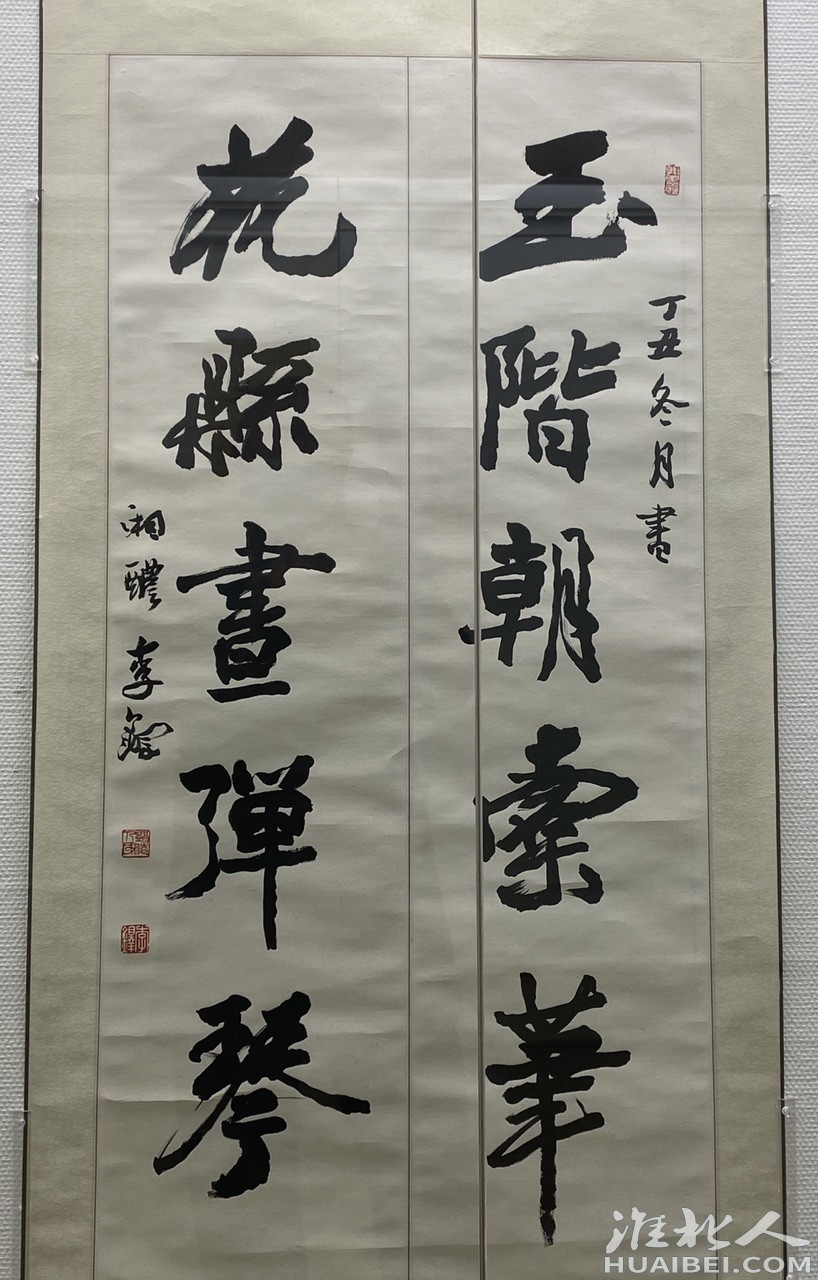 玉階朝索筆
丁丑冬月書
花縣晝彈琴
湘醴李鐸
淮北人
HUAIBEI.COM